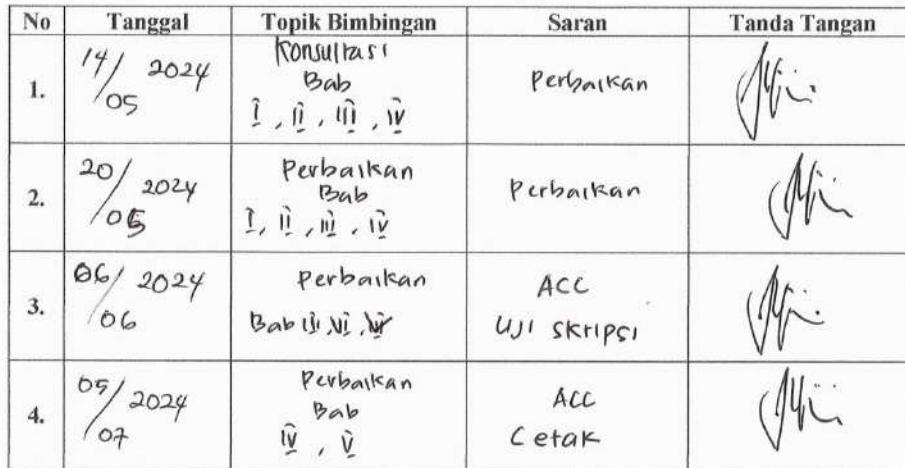 No Tanggal Topik Bimbingan Saran Tanda Tangan
1. 14/05 2024 Konsultasi Bab I, II, III, IV Perbaikan
2. 20/05 2024 Perbaikan Bab I, II, III, IV Perbaikan
3. 06/06 2024 Perbaikan Bab ACC Uji Skripsi
4. 05/07 2024 Perbaikan Bab IV, V ACC Cetak